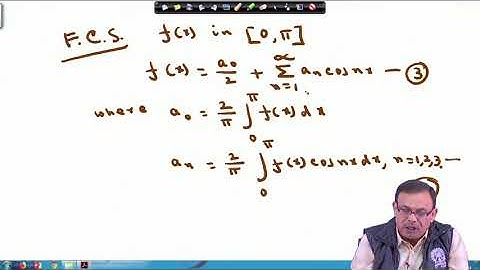 F.C.S. f(x) in [0, π]
f(x) = a₀/2 + ∑_{n=1}^{∞} aₙ cos nx — ③
where a₀ = 2/π ∫₀^π f(x) dx
aₙ = 2/π ∫₀^π f(x) cos nx dx, n=1,2,3, ---